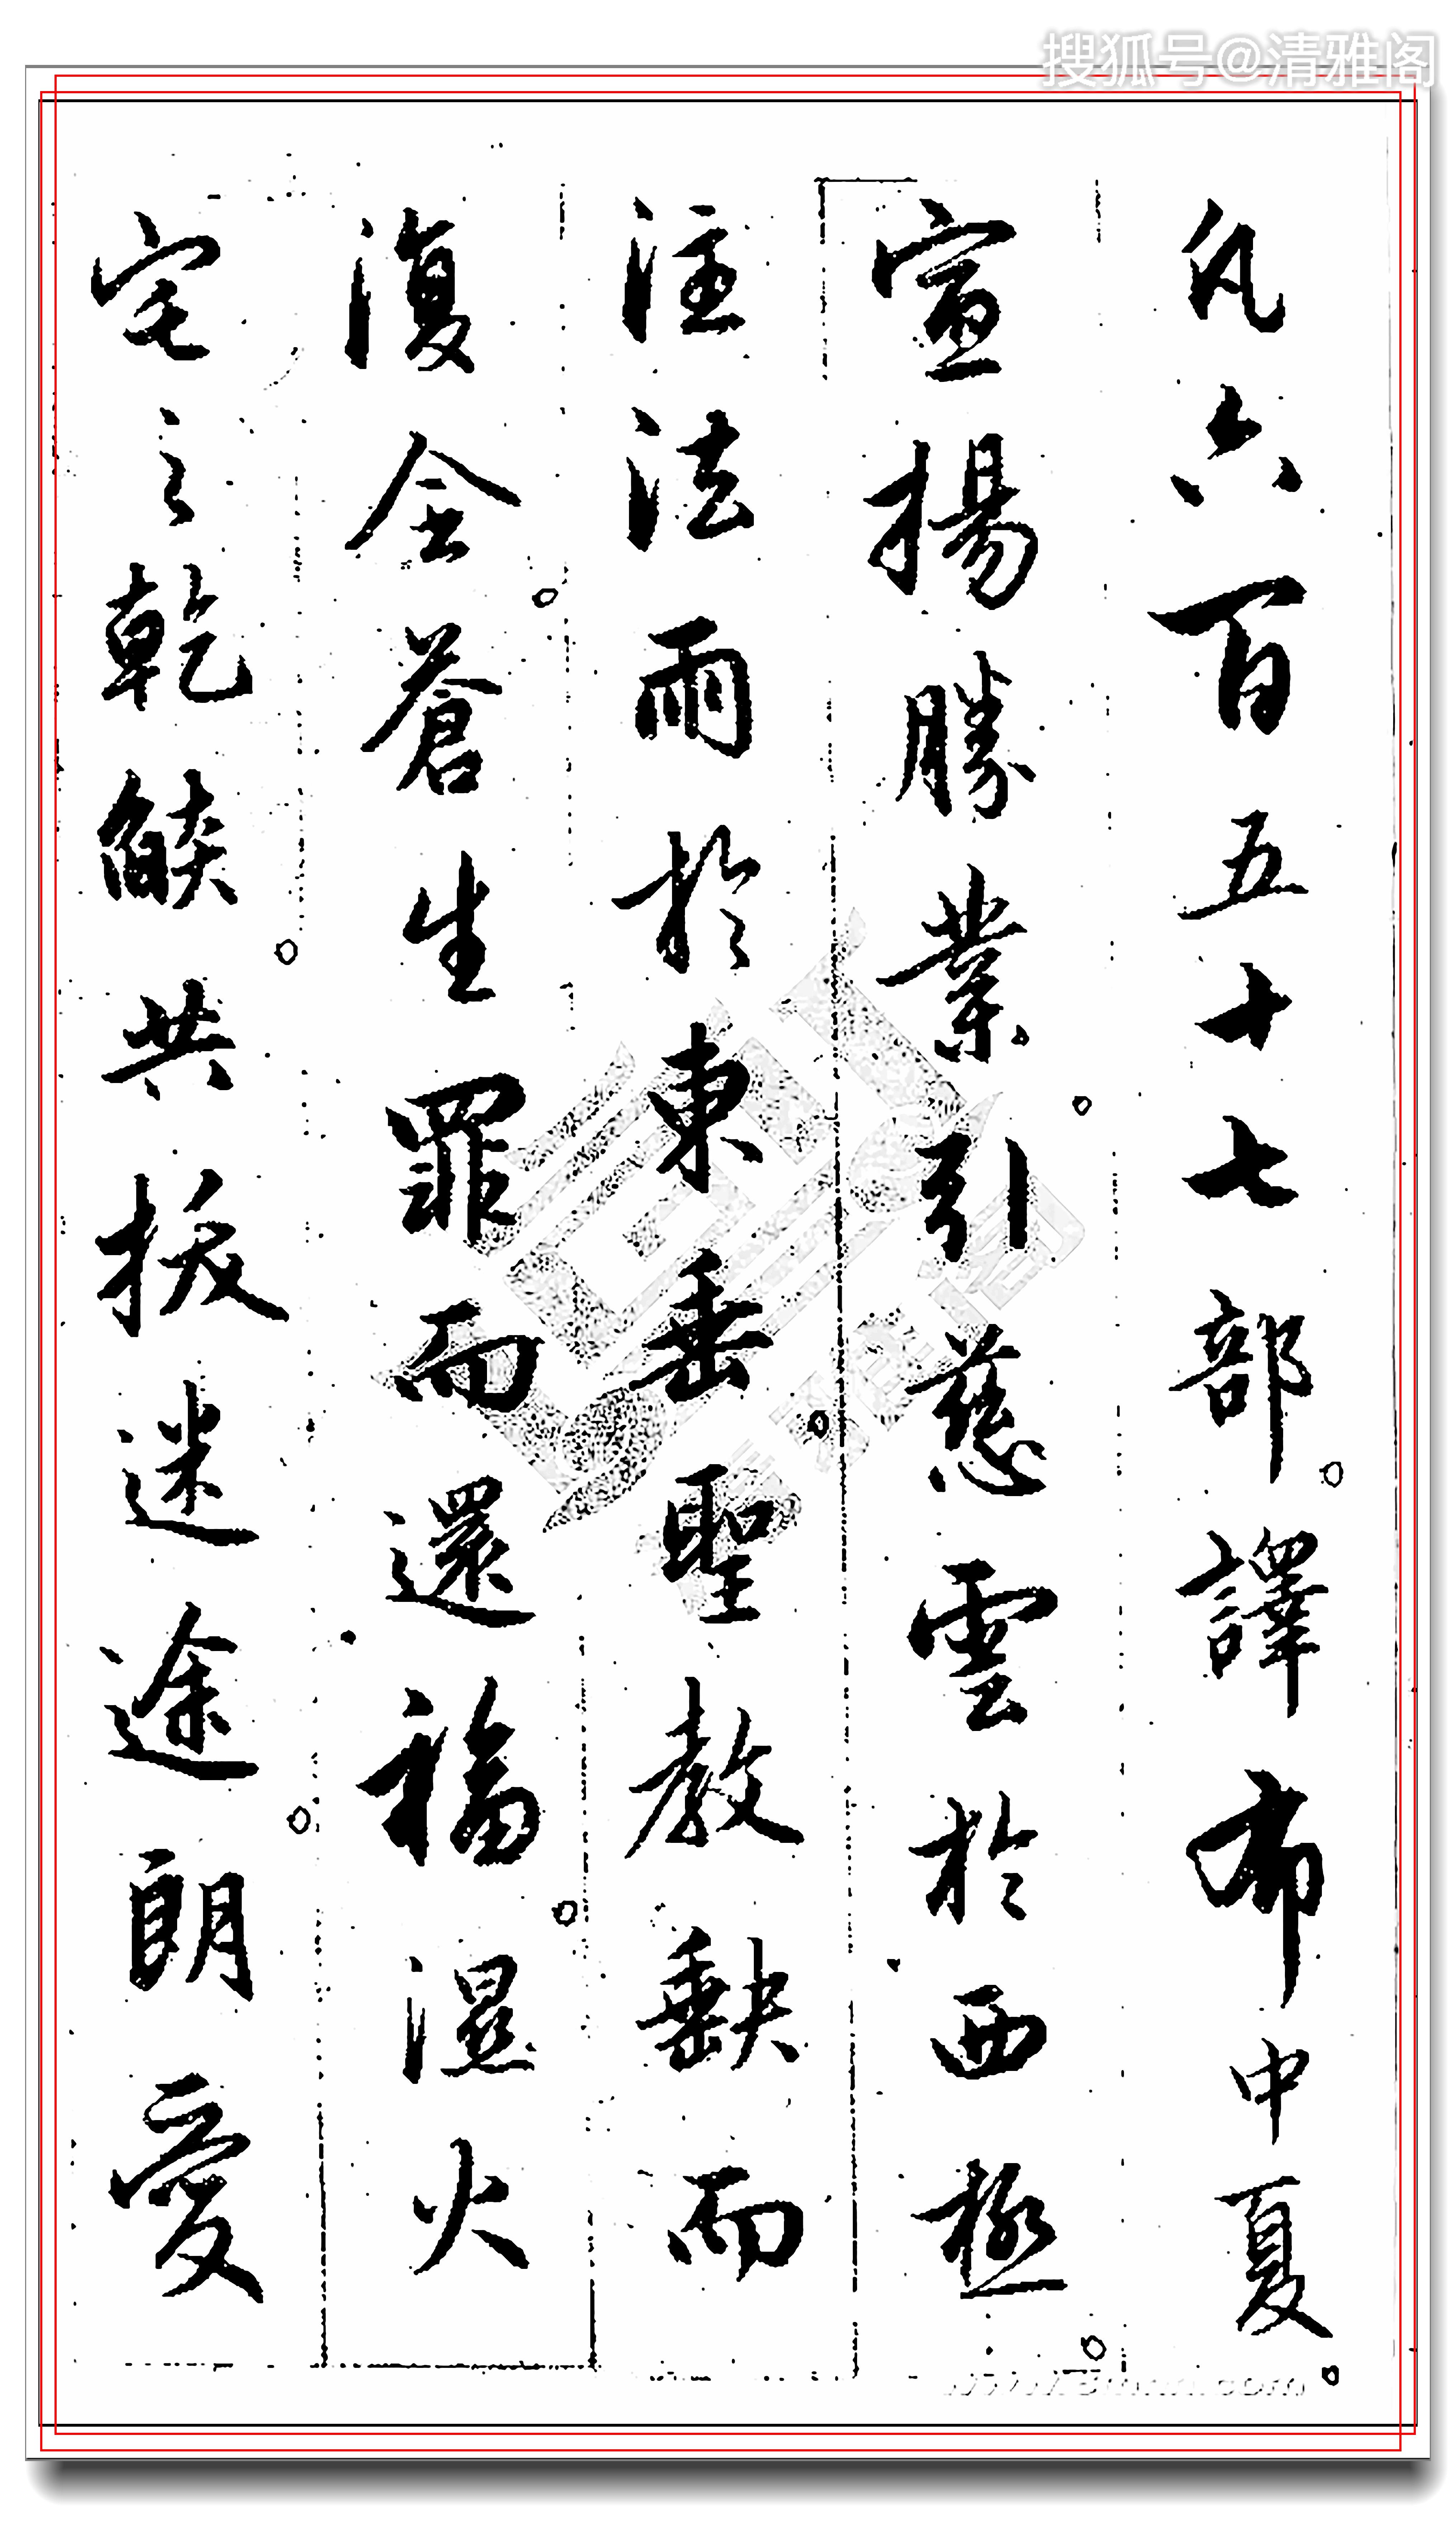 搜狐号@清雅阁
凡六百五十七部譯布中夏
宣揚勝業引慈雲於西極
注法雨於東垂聖教缺而
復全蒼生罪而還福濕火
宅之乾燄共拔迷途朗愛
清雅阁